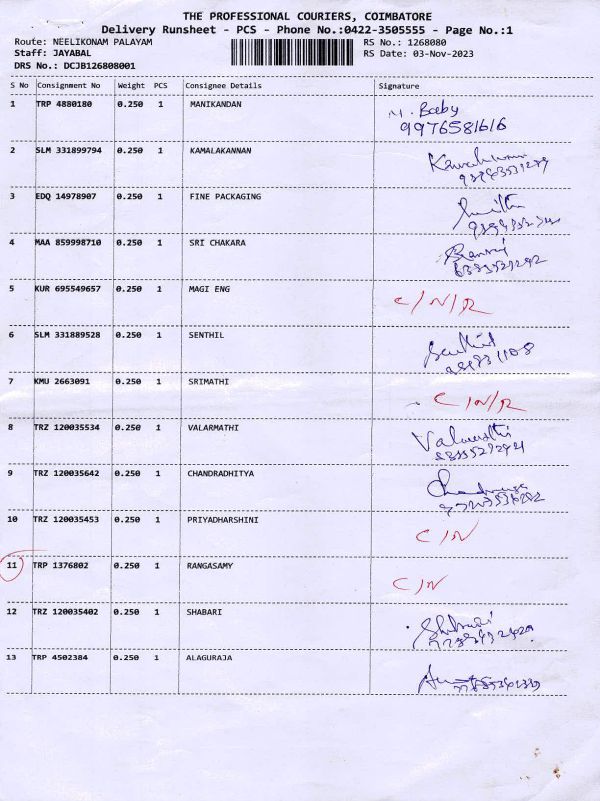 THE PROFESSIONAL COURIERS, COIMBATORE
Delivery Runsheet - PCS - Phone No.:0422-3505555 - Page No.:1
Route: NEELIKONAM PALAYAM RS No.: 1268080
Staff: JAYABAL RS Date: 03-Nov-2023
DRS No.: DCJB126808001
S No Consignment No Weight PCS Consignee Details Signature
1 TRP 4880180 0.250 1 MANIKANDAN M. Baby
9976581616
2 SLM 331899794 0.250 1 KAMALAKANNAN
3 EDQ 14978907 0.250 1 FINE PACKAGING
4 MAA 859998710 0.250 1 SRI CHAKARA
5 KUR 695549657 0.250 1 MAGI ENG C/N/R
6 SLM 331889528 0.250 1 SENTHIL Senthil
7 KMU 2663091 0.250 1 SRIMATHI C/N/R
8 TRZ 120035534 0.250 1 VALARMATHI Valarmathi
9 TRZ 120035642 0.250 1 CHANDRADHITYA
10 TRZ 120035453 0.250 1 PRIYADHARSHINI C/N
11 TRP 1376802 0.250 1 RANGASAMY C/N
12 TRZ 120035402 0.250 1 SHABARI
13 TRP 4502384 0.250 1 ALAGURAJA